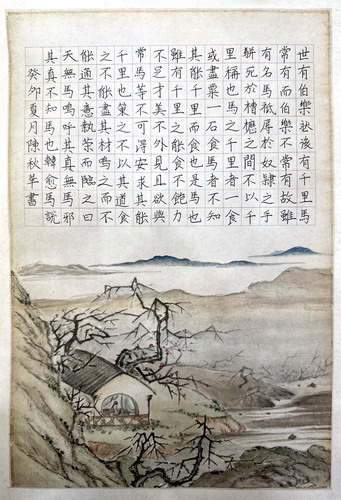 世有伯樂然後有千里馬
常有而伯樂不常有故雖
有名馬祗辱於奴隸之手
駢死於槽櫪之間不以千
里稱也馬之千里者一食
或盡粟一石食馬者不知
其能千里而食也是馬也
雖有千里之能食不飽力
不足才美不外見且欲與
常馬等不可得安求其能
千里也策之不以其道食
之不能盡其材鳴之而不
能通其意執策而臨之曰
天無馬嗚呼其真無馬邪
其真不知馬也韓愈馬說
癸卯夏月陳秋華書